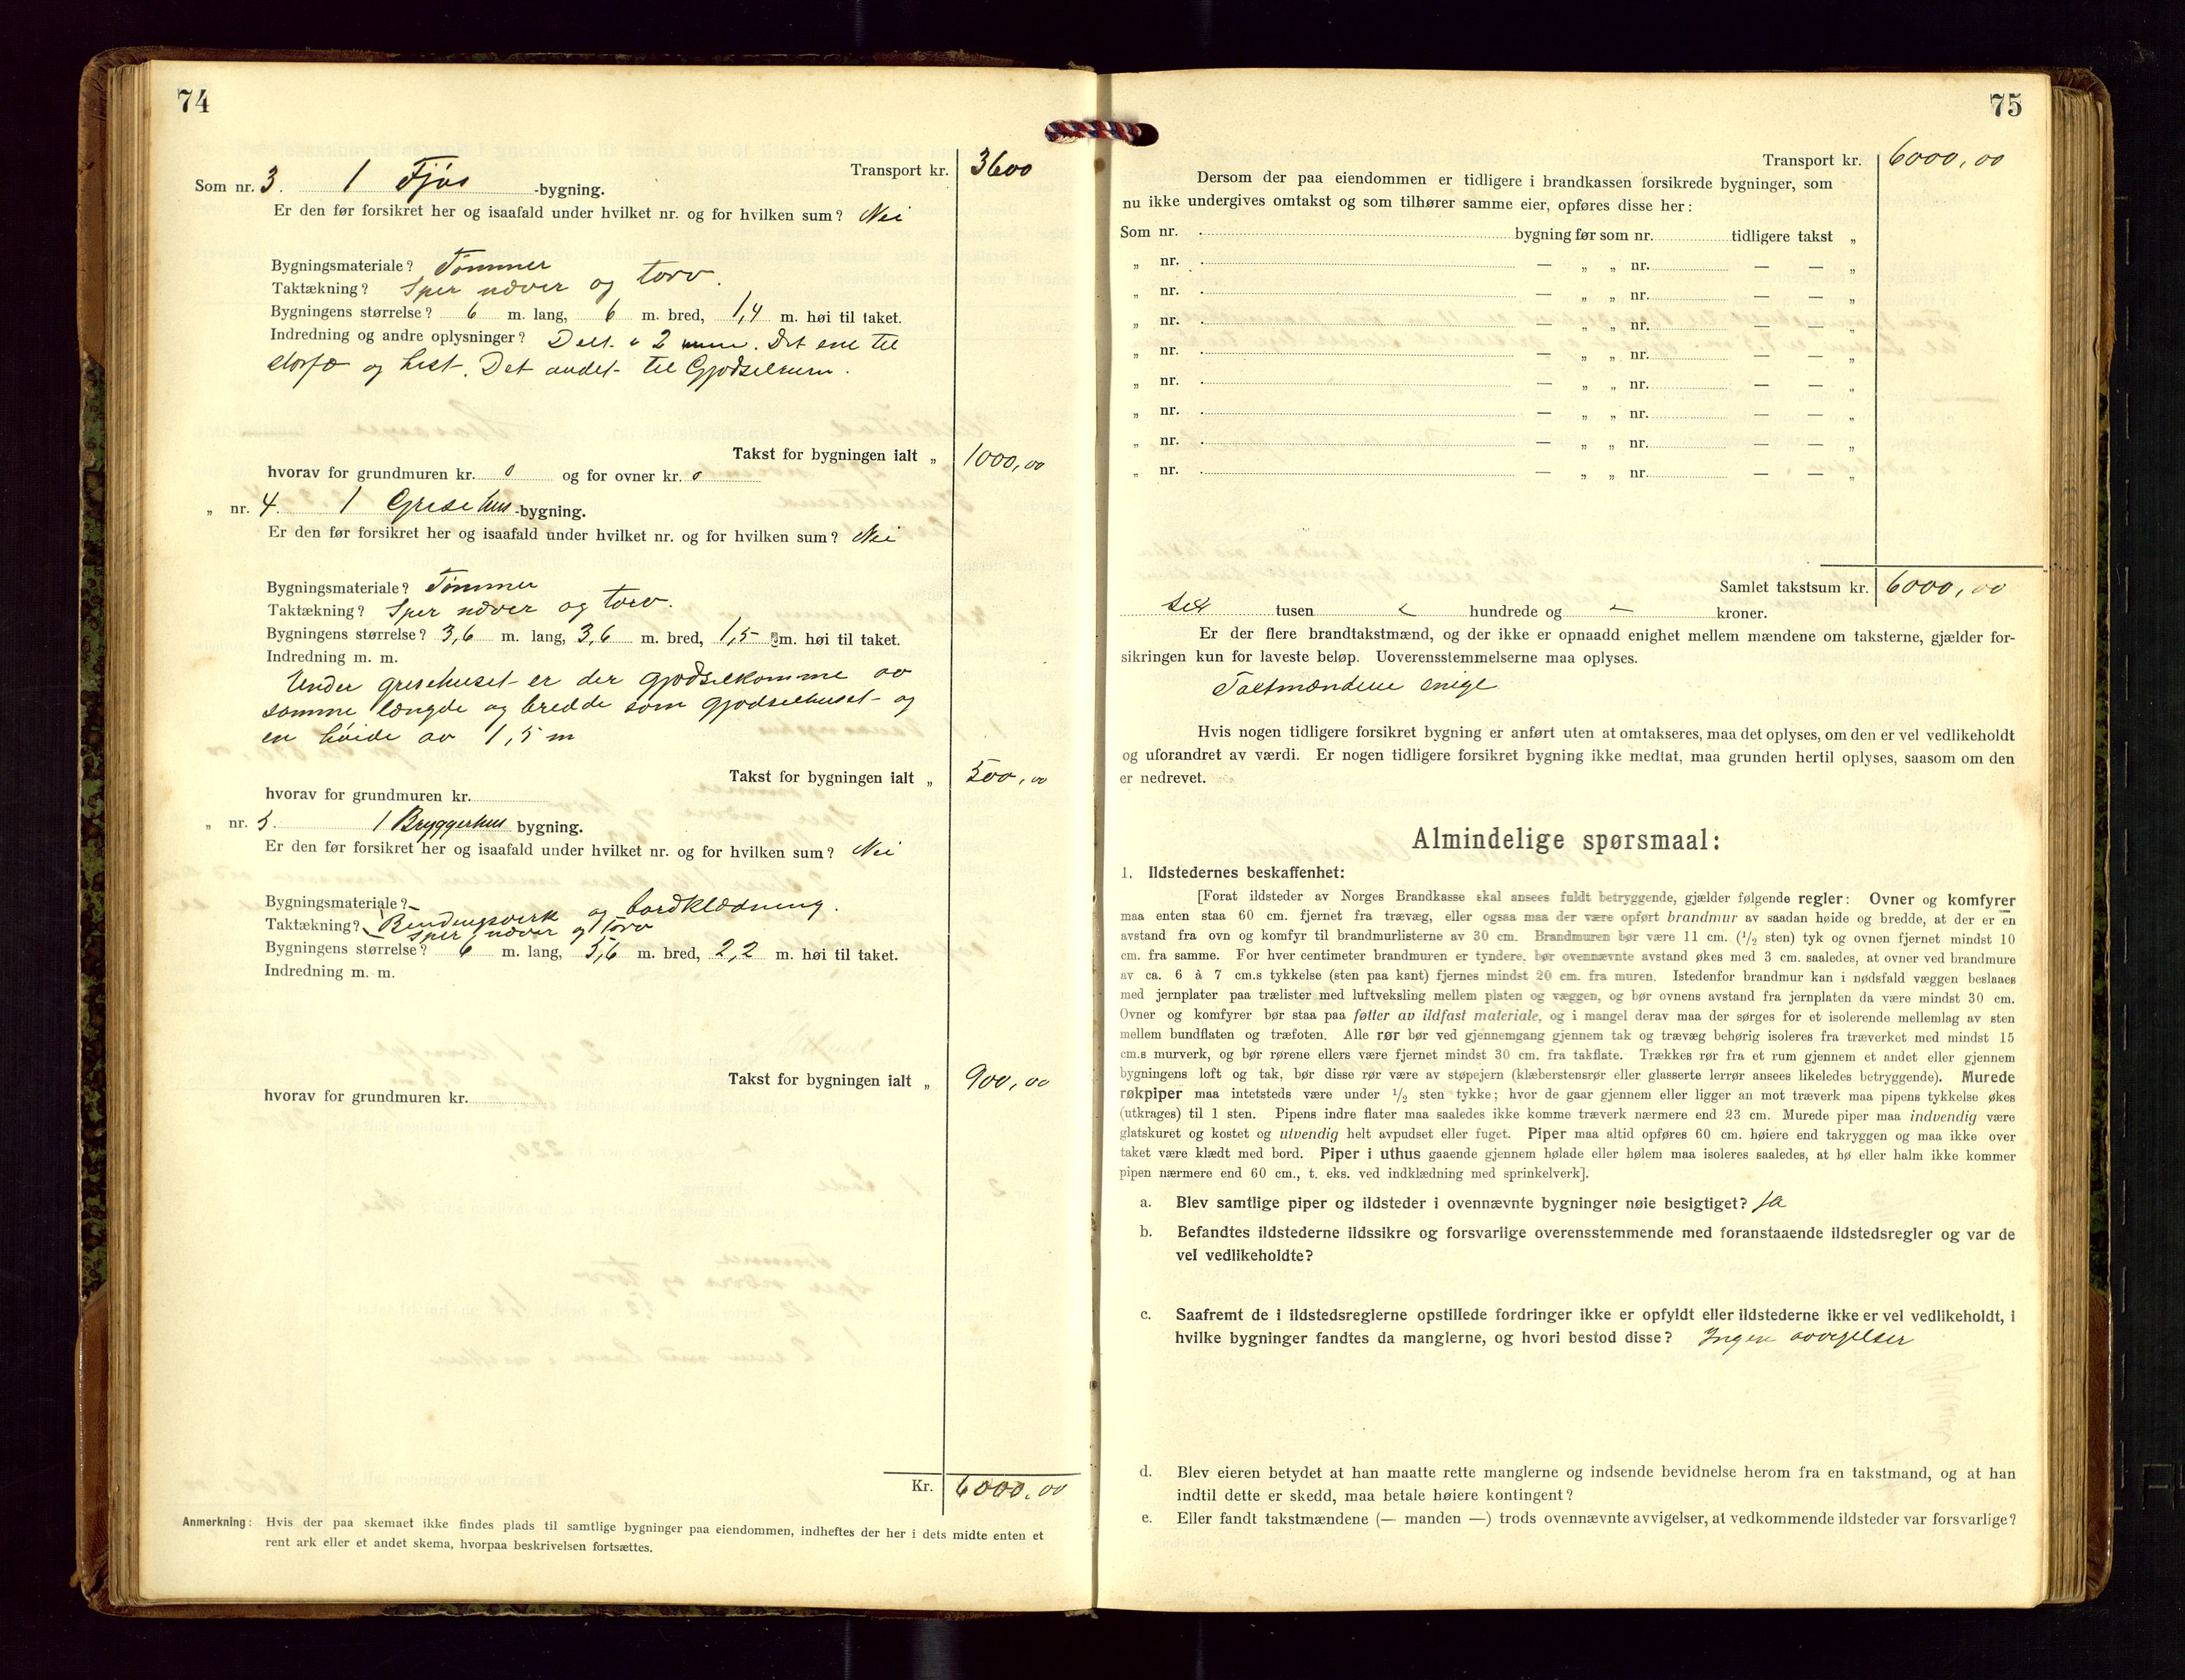 74
Transport kr. 3600
Som nr. 3. 1 Fjøs -bygning.
Er den før forsikret her og isaafald under hvilket nr. og for hvilken sum? Nei
Bygningsmateriale? Tømmer
Taktækning? Sper næver og torv.
Bygningens størrelse? 6 m. lang, 6 m. bred, 1,4 m. høi til taket.
Indredning og andre oplysninger? Delt i 2 rum. Det ene til
storfæ og hest. Det andet til Gjødselrum.
Takst for bygningen ialt „ 1000,00
hvorav for grundmuren kr. 0 og for ovner kr. 0
„ nr. 4. 1 Grisehus -bygning.
Er den før forsikret her og isaafald under hvilket nr. og for hvilken sum? Nei
Bygningsmateriale? Tømmer
Taktækning? Sper næver og torv.
Bygningens størrelse? 3,6 m. lang, 3,6 m. bred, 1,5 m. høi til taket.
Indredning m. m.
Under grisehuset er der gjødselkomme av
samme længde og bredde som gjødselhuset og
en høide av 1,5 m
Takst for bygningen ialt „ 500,00
hvorav for grundmuren kr.
„ nr. 5. 1 Bryggerhus bygning.
Er den før forsikret her og isaafald under hvilket nr. og for hvilken sum? Nei
Bygningsmateriale? Bindingsverk og bordklædning.
Taktækning? Sper næver og torv
Bygningens størrelse? 6 m. lang, 5,6 m. bred, 2,2 m. høi til taket.
Indredning m. m.
Takst for bygningen ialt „ 900,00
hvorav for grundmuren kr.
Kr. 6000,00
Anmerkning: Hvis der paa skemaet ikke findes plads til samtlige bygninger paa eiendommen, indheftes der her i dets midte enten et
rent ark eller et andet skema, hvorpaa beskrivelsen fortsættes.
75
Transport kr. 6000,00
Dersom der paa eiendommen er tidligere i brandkassen forsikrede bygninger, som
nu ikke undergives omtakst og som tilhører samme eier, opføres disse her:
Som nr. bygning før som nr. tidligere takst „
„ nr. — „ „ nr. — — „
„ nr. — „ „ nr. — — „
„ nr. — „ „ nr. — — „
„ nr. — „ „ nr. — — „
„ nr. — „ „ nr. — — „
„ nr. — „ „ nr. — — „
„ nr. — „ „ nr. — — „
„ nr. — „ „ nr. — — „
Samlet takstsum kr. 6000,00
sex tusen - hundrede og - kroner.
Er der flere brandtakstmænd, og der ikke er opnaadd enighet mellem mændene om taksterne, gjælder for-
sikringen kun for laveste beløp. Uoverensstemmelserne maa oplyses.
Taktmændene enige
Hvis nogen tidligere forsikret bygning er anført uten at omtakseres, maa det oplyses, om den er vel vedlikeholdt
og uforandret av værdi. Er nogen tidligere forsikret bygning ikke medtat, maa grunden hertil oplyses, saasom om den
er nedrevet.
Almindelige spørsmaal:
1. Ildstedernes beskaffenhet:
[Forat ildsteder av Norges Brandkasse skal ansees fuldt betryggende, gjælder følgende regler: Ovner og komfyrer
maa enten staa 60 cm. fjernet fra trævæg, eller ogsaa maa der være opført brandmur av saadan høide og bredde, at der er en
avstand fra ovn og komfyr til brandmurlisterne av 30 cm. Brandmuren bør være 11 cm. (1/2 sten) tyk og ovnen fjernet mindst 10
cm. fra samme. For hver centimeter brandmuren er tyndere, bør ovennævnte avstand økes med 3 cm. saaledes, at ovner ved brandmure
av ca. 6 à 7 cm.s tykkelse (sten paa kant) fjernes mindst 20 cm. fra muren. Istedenfor brandmur kan i nødsfald væggen beslaaes
med jernplater paa trælister med luftveksling mellem platen og væggen, og bør ovnens avstand fra jernplaten da være mindst 30 cm.
Ovner og komfyrer bør staa paa føtter av ildfast materiale, og i mangel derav maa der sørges for et isolerende mellemlag av sten
mellem bundflaten og træfoten. Alle rør bør ved gjennemgang gjennem tak og trævæg behørig isoleres fra træverket med mindst 15
cm.s murverk, og bør rørene ellers være fjernet mindst 30 cm. fra takflate. Trækkes rør fra et rum gjennem et andet eller gjennem
bygningens loft og tak, bør disse rør være av støpejern (klæberstensrør eller glasserte lerrør ansees likeledes betryggende). Murede
røkpiper maa intetsteds være under 1/2 sten tykke; hvor de gaar gjennem eller ligger an mot træverk maa pipens tykkelse økes
(utkrages) til 1 sten. Pipens indre flater maa saaledes ikke komme træverk nærmere end 23 cm. Murede piper maa indvendig være
glatskuret og kostet og utvendig helt avpudset eller fuget. Piper maa altid opføres 60 cm. høiere end takryggen og maa ikke over
taket være klædt med bord. Piper i uthus gaaende gjennem hølade eller hølem maa isoleres saaledes, at hø eller halm ikke kommer
pipen nærmere end 60 cm., t. eks. ved indklædning med sprinkelverk].
a. Blev samtlige piper og ildsteder i ovennævnte bygninger nøie besigtiget? Ja
b. Befandtes ildstederne ildssikre og forsvarlige overensstemmende med foranstaaende ildstedsregler og var de
vel vedlikeholdte?
c. Saafremt de i ildstedsreglerne opstillede fordringer ikke er opfyldt eller ildstederne ikke er vel vedlikeholdt, i
hvilke bygninger fandtes da manglerne, og hvori bestod disse? Ingen avvigelser
d. Blev eieren betydet at han maatte rette manglerne og indsende bevidnelse herom fra en takstmand, og at han
indtil dette er skedd, maa betale høiere kontingent?
e. Eller fandt takstmændene (— manden —) trods ovennævnte avvigelser, at vedkommende ildsteder var forsvarlige?